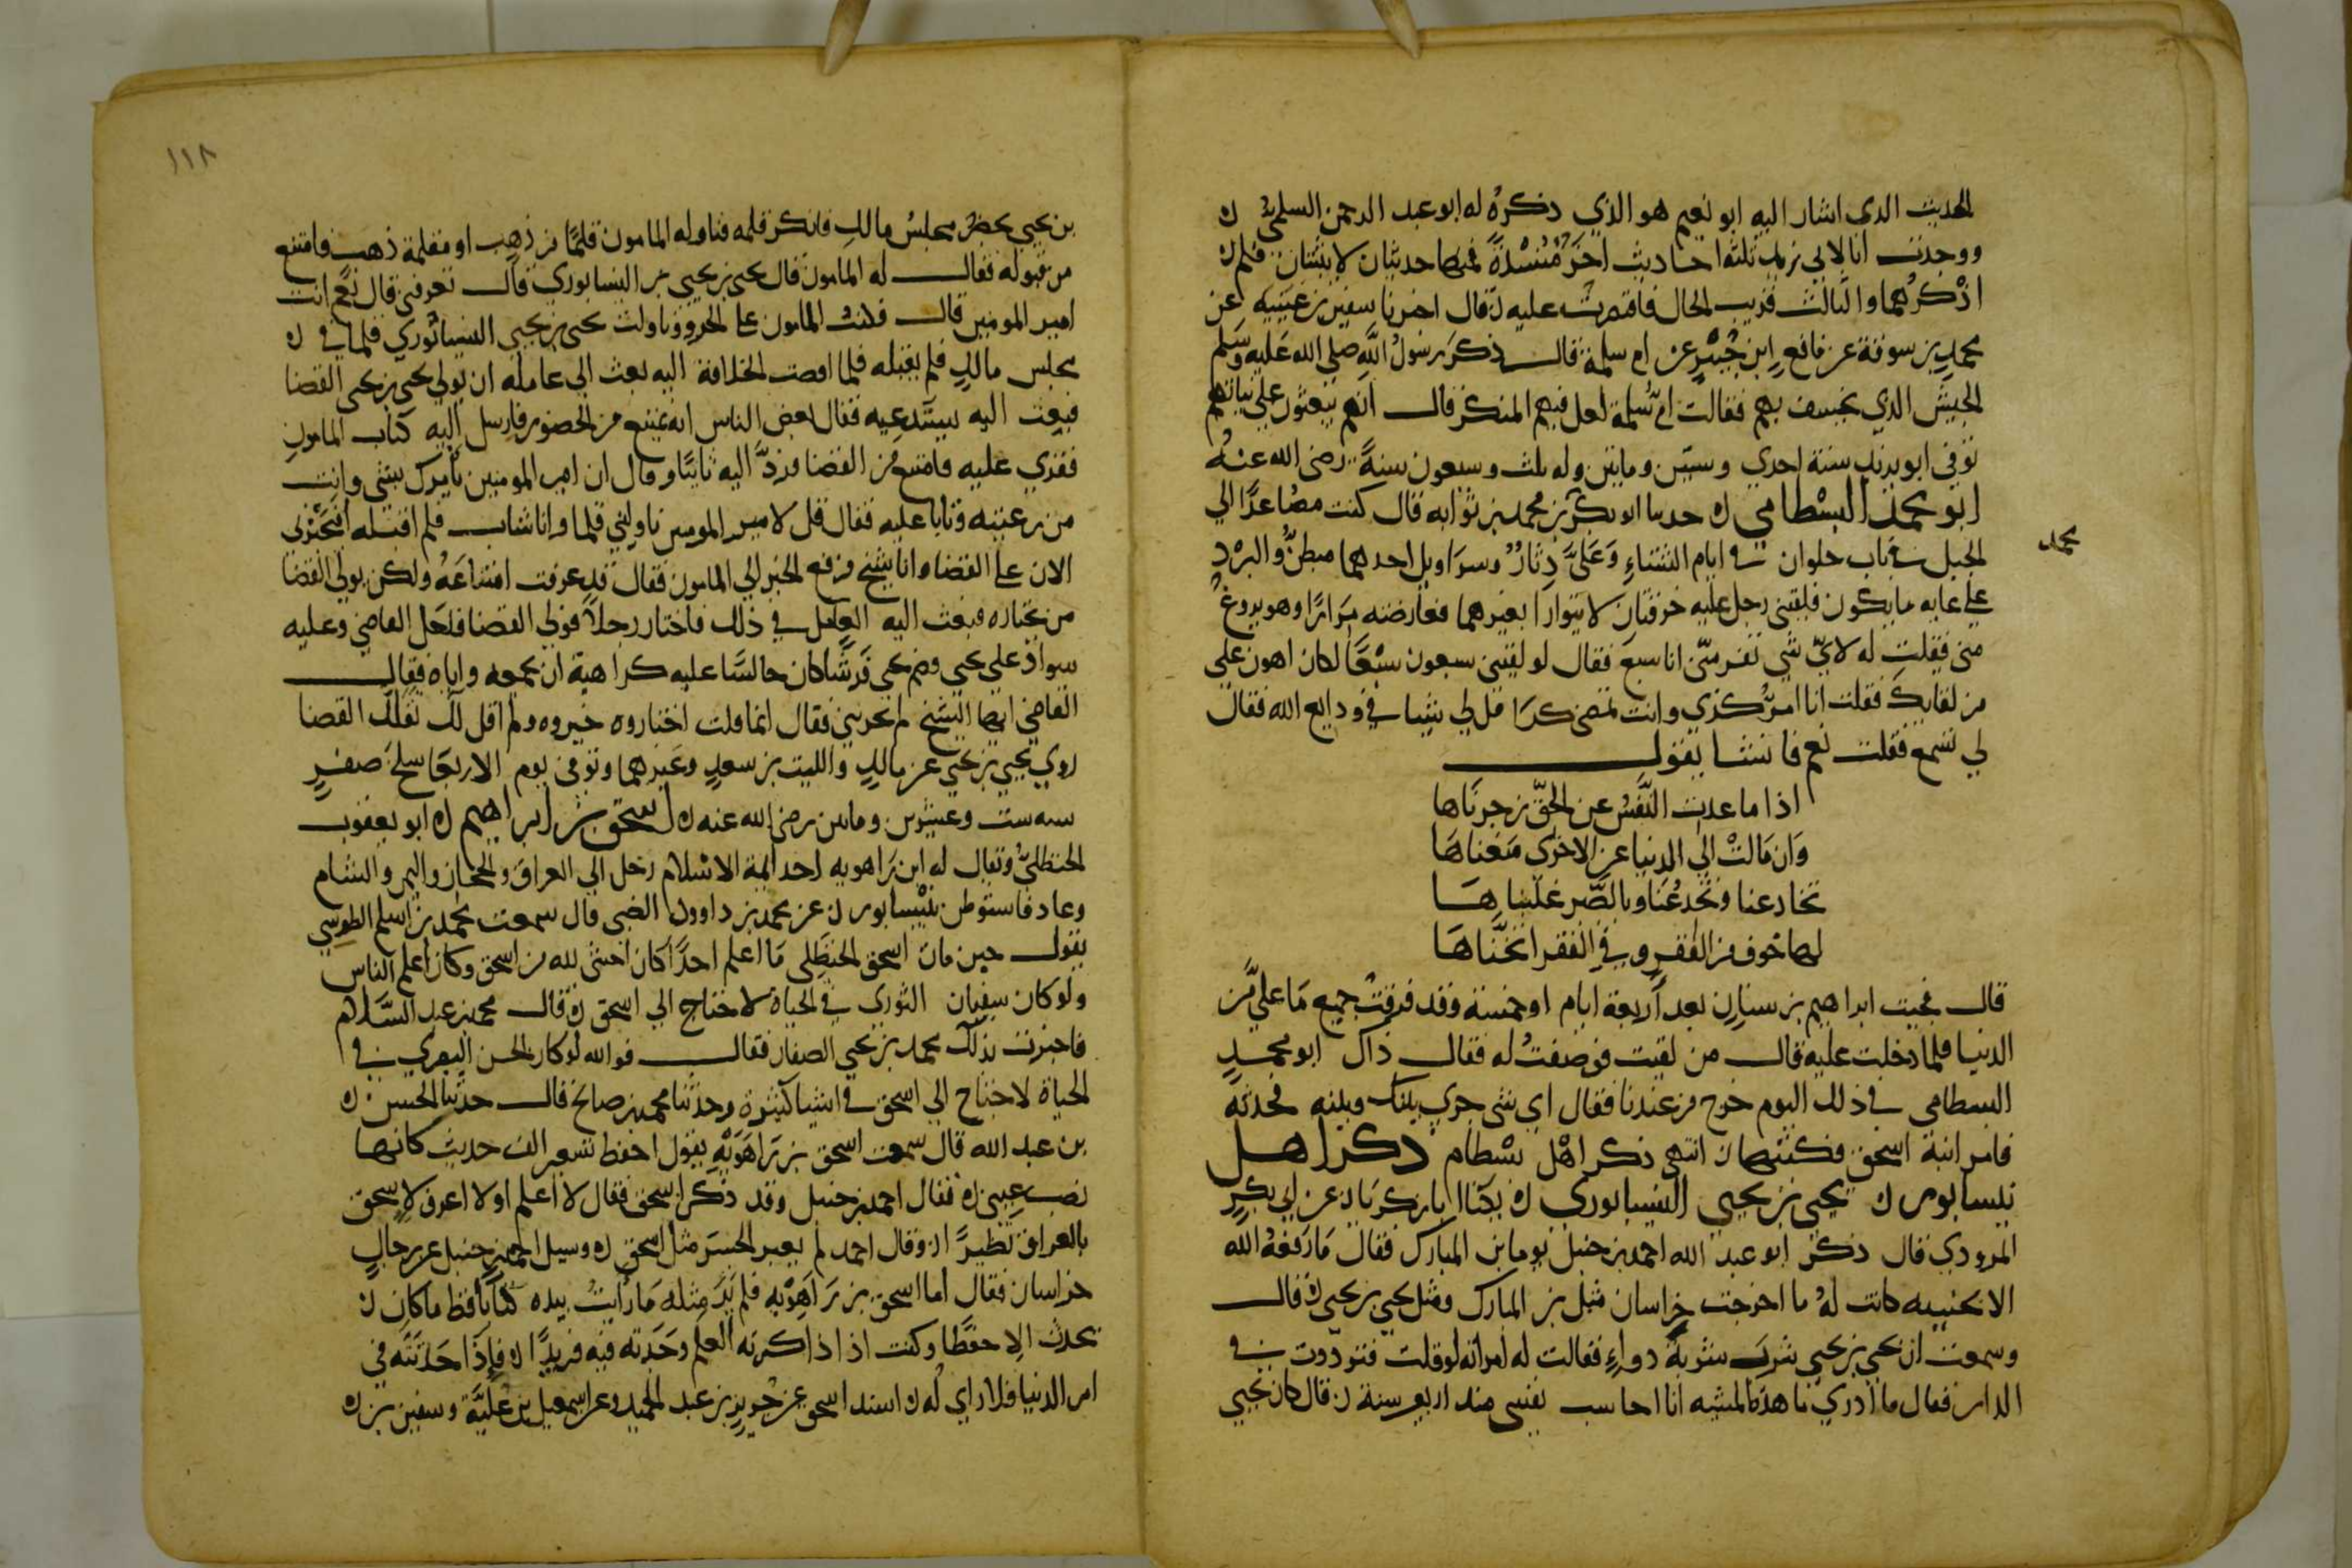 الحديث الذي اشار اليه ابو نعيم هو الذي ذكره له ابو عبد الرحمن السلمي
ووجدت انا لابي يزيد ثلثة احاديث اخر مسندة فمنها حديثان لا يثبتان فلم
اذكرهما والثالث قريب الحال فاقتصرت عليه قال اخبرنا سفين بن عيينه عن
محمد بن سوقة عن نافع ابن جبير عن ام سلمة قالت ذكر رسول الله صلى الله عليه وسلم
الجيش الذي يخسف بهم فقالت ام سلمة لعل فيهم المنكره قال انهم يبعثون على نياتهم
توفي ابو يزيد سنة احدي وستين وماتين وله ثلث وسبعون سنة رضي الله عنه
ابو محمد البسطامي حدثنا ابو بكر بن محمد بن ثوابه قال كنت مصاعدا الي
محمد
الجبل في باب حلوان في ايام الشتاء وعلي دثار وسراويل احدهما مبطن والبرد
علي غايه ما يكون فلقيني رجل عليه خرقتان لا يتوارا بغيرهما فعارضته مرارا وهو يروغ
مني فقلت له لاي شي تفر مني انا سبع فقال لو لقيني سبعون سبعا لكان اهون علي
من لقايك فقلت انا امر كذي وانت تمضي كذا قل لي شيا في ودايع الله فقال
لي تسمع فقلت نعم فانشا يقول
اذا ما عدت النفس عن الحق زجرناها
وان مالت الي الدنيا عن الاخري منعناها
تخادعنا ونخدعنا وبالصبر غلبناها
لها خوف من الفقر وفي الفقر انخناها
قال فجيت ابراهيم بن سنان بعد اربعة ايام او خمسة وقد فرقت جميع ما علي من
الدنيا فلما دخلت عليه قال من لقيت فوصفت له فقال ذاك ابو محمد
البسطامي في ذلك اليوم خرج من عندنا فقال اي شي جري بينك وبينه فحدثته
فامر ابنة اسحق فكتبها انتهي ذكر اهل بسطام ذكر اهل
نيسابور يحيي بن يحيي النيسابوري يكنا ابا زكريا عن ابي بكر
المروذي قال ذكر ابو عبد الله احمد بن حنبل يوما ابن المبارك فقال ما رفعه الله
الا بخبيه كانت له ما اخرجت خراسان مثل بن المبارك ومثل يحيي بن يحيي قال
وسمعت ان يحيي بن يحيي شرب شربة دواء فقالت له امراته لو قلت فترددت في
الدار فقال ما ادري ما هذه المشيه انا احاسب نفسي منذ اربعين سنة قال كان يحيي
١١٨
بن يحيي يحضر مجلس مالك فانكسر قلمه فناوله المامون قلما من ذهب او مقلمة ذهب فامتنع
من قبوله فقال له المامون قال يحيي بن يحيي النيسابوري قال تعرفني قال نعم انت
امير المومنين قال فكتب المامون على الجزو وناولت يحيي بن يحيي النيسابوري قلما في
مجلس مالك فلم يقبله فلما افضت الخلافة اليه بعث الي عامله ان يولي يحيي بن يحيي القضا
فبعث اليه يستدعيه فقال بعض الناس انه يمتنع من الحضور فارسل اليه كتاب المامون
فقري عليه فامتنع من القضا فرد اليه ثانيا وقال ان امير المومنين يامرك بشي وانت
من رعيته وتابا عليه فقال قل لامير المومنين ناولتني قلما وانا شاب فلم اقبله افتجبرني
الان علي القضا وانا شيخ فرفع الخبر الي المامون فقال قد عرفت امتناعه ولكن يولي القضا
من يختاره فبعث اليه العامل في ذلك فاختار رجلا فولي القضا فدخل القاضي وعليه
سواد علي يحيي وضم يحيي فرشا كان جالسا عليه كراهية ان يجمعه واياه فقال
القاضي ايها الشيخ الم تخترني فقال انما قلت اختاروه خيروه ولم اقل لك تقلد القضا
روي يحيي بن يحيي عن مالك والليث بن سعد وغيرهما وتوفي يوم الاربعا سلخ صفر
سنه ست وعشرين وماتين رضي الله عنه اسحق بن ابراهيم ابو يعقوب
الحنظلي ويقال له ابن راهويه احد ايمة الاسلام رحل الي العراق والحجاز واليمن والشام
وعاد فاستوطن نيسابور عن محمد بن داوود الضبي قال سمعت محمد بن اسلم الطوسي
يقول حين مات اسحق الحنظلي ما اعلم احدا كان اخشي لله من اسحق وكان اعلم الناس
ولو كان سفيان الثوري في الحياة لاحتاج الي اسحق قال محمد بن عبد السلام
فاخبرت بذلك محمد بن يحيي الصفار فقال فوالله لو كان الحسن البصري في
الحياة لاحتاج الي اسحق في اشيا كثيرة وحدثنا محمد بن صالح قال حدثنا الحسن
بن عبد الله قال سمعت اسحق بن راهويه يقول احفظ تسعين الف حديث كانها
نصب عيني فقال احمد بن حنبل وقد ذكر اسحق فقال لا اعلم او لا اعرف لاسحق
بالعراق نظيرا وقال احمد لم يعبر الجسر مثل اسحق وسيل احمد بن حنبل عن رجال
خراسان فقال اما اسحق بن راهويه فلم ير مثله ما رايت بيده كتابا قط ما كان
يحدث الا حفظا وكنت اذا ذاكرته العلم وجدته فيه فريدا فاذا حدثته في
امر الدنيا فلا راي له اسند اسحق عن جرير بن عبد الحميد وعن اسمعيل بن علية وسفين بن